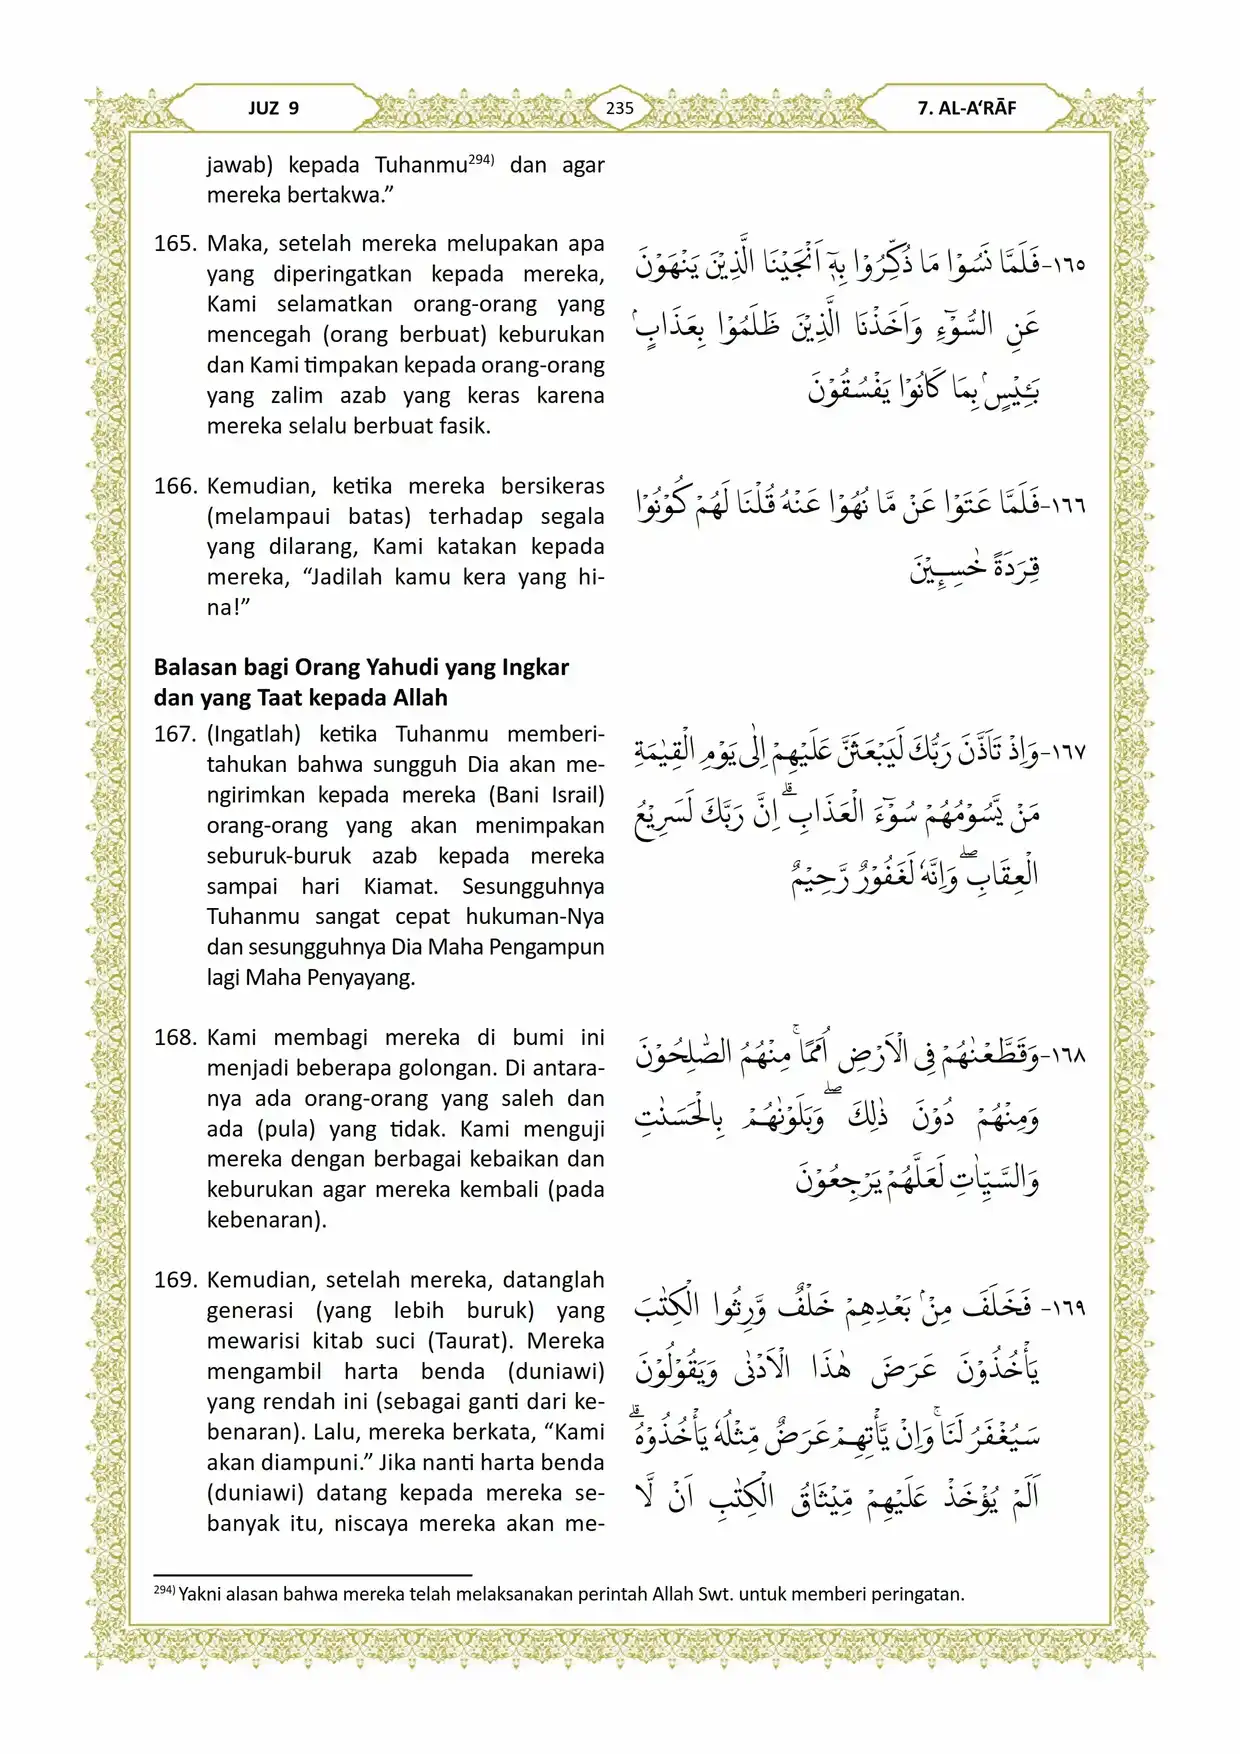 JUZ 9
235
7. AL-A‘RĀF
jawab) kepada Tuhanmu²⁹⁴⁾ dan agar
mereka bertakwa.”
165. Maka, setelah mereka melupakan apa
yang diperingatkan kepada mereka,
Kami selamatkan orang-orang yang
mencegah (orang berbuat) keburukan
dan Kami timpakan kepada orang-orang
yang zalim azab yang keras karena
mereka selalu berbuat fasik.
١٦٥-فَلَمَّا نَسُوْا مَا ذُكِّرُوْا بِهٖٓ اَنْجَيْنَا الَّذِيْنَ يَنْهَوْنَ
عَنِ السُّوْۤءِ وَاَخَذْنَا الَّذِيْنَ ظَلَمُوْا بِعَذَابٍۢ
بَـِٔيْسٍۢ بِمَا كَانُوْا يَفْسُقُوْنَ
166. Kemudian, ketika mereka bersikeras
(melampaui batas) terhadap segala
yang dilarang, Kami katakan kepada
mereka, “Jadilah kamu kera yang hi-
na!”
١٦٦-فَلَمَّا عَتَوْا عَنْ مَّا نُهُوْا عَنْهُ قُلْنَا لَهُمْ كُوْنُوْا
قِرَدَةً خٰسِـِٕيْنَ
Balasan bagi Orang Yahudi yang Ingkar
dan yang Taat kepada Allah
167. (Ingatlah) ketika Tuhanmu memberi-
tahukan bahwa sungguh Dia akan me-
ngirimkan kepada mereka (Bani Israil)
orang-orang yang akan menimpakan
seburuk-buruk azab kepada mereka
sampai hari Kiamat. Sesungguhnya
Tuhanmu sangat cepat hukuman-Nya
dan sesungguhnya Dia Maha Pengampun
lagi Maha Penyayang.
١٦٧-وَاِذْ تَاَذَّنَ رَبُّكَ لَيَبْعَثَنَّ عَلَيْهِمْ اِلٰى يَوْمِ الْقِيٰمَةِ
مَنْ يَّسُوْمُهُمْ سُوْۤءَ الْعَذَابِۗ اِنَّ رَبَّكَ لَسَرِيْعُ
الْعِقَابِۖ وَاِنَّهٗ لَغَفُوْرٌ رَّحِيْمٌ
168. Kami membagi mereka di bumi ini
menjadi beberapa golongan. Di antara-
nya ada orang-orang yang saleh dan
ada (pula) yang tidak. Kami menguji
mereka dengan berbagai kebaikan dan
keburukan agar mereka kembali (pada
kebenaran).
١٦٨-وَقَطَّعْنٰهُمْ فِى الْاَرْضِ اُمَمًاۚ مِنْهُمُ الصّٰلِحُوْنَ
وَمِنْهُمْ دُوْنَ ذٰلِكَۖ وَبَلَوْنٰهُمْ بِالْحَسَنٰتِ
وَالسَّيِّاٰتِ لَعَلَّهُمْ يَرْجِعُوْنَ
169. Kemudian, setelah mereka, datanglah
generasi (yang lebih buruk) yang
mewarisi kitab suci (Taurat). Mereka
mengambil harta benda (duniawi)
yang rendah ini (sebagai ganti dari ke-
benaran). Lalu, mereka berkata, “Kami
akan diampuni.” Jika nanti harta benda
(duniawi) datang kepada mereka se-
banyak itu, niscaya mereka akan me-
١٦٩- فَخَلَفَ مِنْۢ بَعْدِهِمْ خَلْفٌ وَّرِثُوا الْكِتٰبَ
يَأْخُذُوْنَ عَرَضَ هٰذَا الْاَدْنٰى وَيَقُوْلُوْنَ
سَيُغْفَرُ لَنَاۚ وَاِنْ يَّأْتِهِمْ عَرَضٌ مِّثْلُهٗ يَأْخُذُوْهُۗ
اَلَمْ يُؤْخَذْ عَلَيْهِمْ مِّيْثَاقُ الْكِتٰبِ اَنْ لَّا
²⁹⁴⁾ Yakni alasan bahwa mereka telah melaksanakan perintah Allah Swt. untuk memberi peringatan.